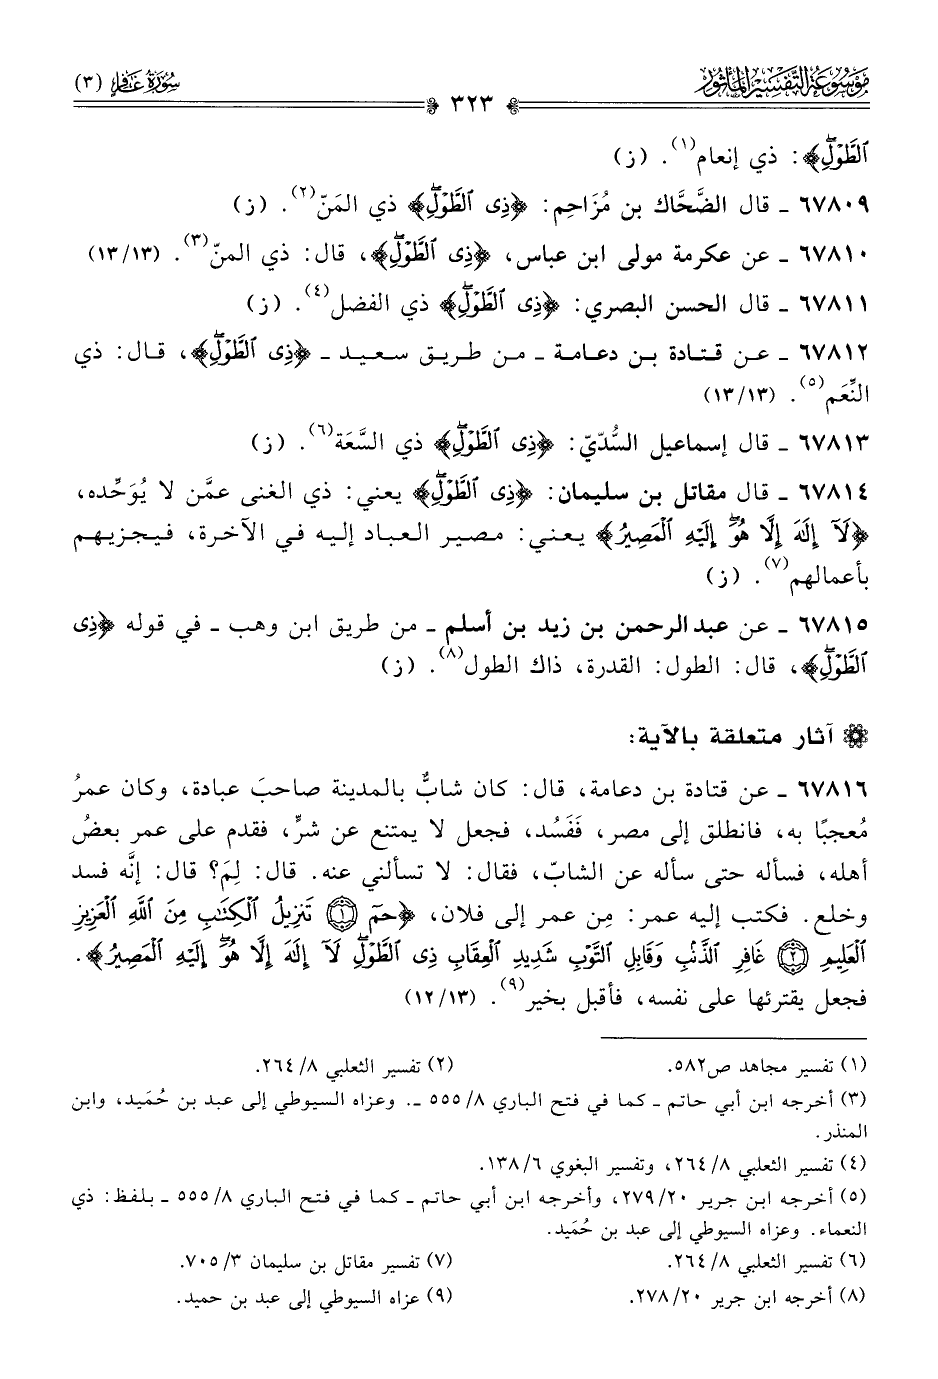 مَوْسُوعَةُ التَّفْسِيْرِ المَأْثُور
سُورَةُ غَافِر (٣)
٣٢٣
ٱلطَّوْلِۖ﴾: ذي إنعام(١). (ز)
٦٧٨٠٩ ـ قال الضَّحَّاك بن مُزَاحِم: ﴿ذِى ٱلطَّوْلِۖ﴾ ذي المَنّ(٢). (ز)
٦٧٨١٠ ـ عن عكرمة مولى ابن عباس، ﴿ذِى ٱلطَّوْلِۖ﴾، قال: ذي المنّ(٣). (١٣/١٣)
٦٧٨١١ ـ قال الحسن البصري: ﴿ذِى ٱلطَّوْلِۖ﴾ ذي الفضل(٤). (ز)
٦٧٨١٢ ـ عن قتادة بن دعامة ـ من طريق سعيد ـ ﴿ذِى ٱلطَّوْلِۖ﴾، قال: ذي
النِّعَم(٥). (١٣/١٣)
٦٧٨١٣ ـ قال إسماعيل السُّدِّيّ: ﴿ذِى ٱلطَّوْلِۖ﴾ ذي السَّعَة(٦). (ز)
٦٧٨١٤ ـ قال مقاتل بن سليمان: ﴿ذِى ٱلطَّوْلِۖ﴾ يعني: ذي الغنى عمَّن لا يُوَحِّده،
﴿لَآ إِلَٰهَ إِلَّا هُوَۖ إِلَيْهِ ٱلْمَصِيرُ﴾ يعني: مصير العباد إليه في الآخرة، فيجزيهم
بأعمالهم(٧). (ز)
٦٧٨١٥ ـ عن عبد الرحمن بن زيد بن أسلم ـ من طريق ابن وهب ـ في قوله ﴿ذِى
ٱلطَّوْلِۖ﴾، قال: الطول: القدرة، ذاك الطول(٨). (ز)
آثار متعلقة بالآية:
٦٧٨١٦ ـ عن قتادة بن دعامة، قال: كان شابٌّ بالمدينة صاحبَ عبادة، وكان عمرُ
مُعجبًا به، فانطلق إلى مصر، فَفَسُد، فجعل لا يمتنع عن شرٍّ، فقدم على عمر بعضُ
أهله، فسأله حتى سأله عن الشابّ، فقال: لا تسألني عنه. قال: لِمَ؟ قال: إنَّه فسد
وخلع. فكتب إليه عمر: مِن عمر إلى فلان، ﴿حمٓ ١ تَنزِيلُ ٱلْكِتَٰبِ مِنَ ٱللَّهِ ٱلْعَزِيزِ
ٱلْعَلِيمِ ٢ غَافِرِ ٱلذَّنۢبِ وَقَابِلِ ٱلتَّوْبِ شَدِيدِ ٱلْعِقَابِ ذِى ٱلطَّوْلِۖ لَآ إِلَٰهَ إِلَّا هُوَۖ إِلَيْهِ ٱلْمَصِيرُ﴾.
فجعل يقترئها على نفسه، فأقبل بخير(٩). (١٢/١٣)
(١) تفسير مجاهد ص٥٨٢.
(٢) تفسير الثعلبي ٨/ ٢٦٤.
(٣) أخرجه ابن أبي حاتم ـ كما في فتح الباري ٨/ ٥٥٥ ـ. وعزاه السيوطي إلى عبد بن حُمَيد، وابن
المنذر.
(٤) تفسير الثعلبي ٨/ ٢٦٤، وتفسير البغوي ٦/ ١٣٨.
(٥) أخرجه ابن جرير ٢٠/ ٢٧٩، وأخرجه ابن أبي حاتم ـ كما في فتح الباري ٨/ ٥٥٥ ـ بلفظ: ذي
النعماء. وعزاه السيوطي إلى عبد بن حُمَيد.
(٦) تفسير الثعلبي ٨/ ٢٦٤.
(٧) تفسير مقاتل بن سليمان ٣/ ٧٠٥.
(٨) أخرجه ابن جرير ٢٠/ ٢٧٨.
(٩) عزاه السيوطي إلى عبد بن حميد.